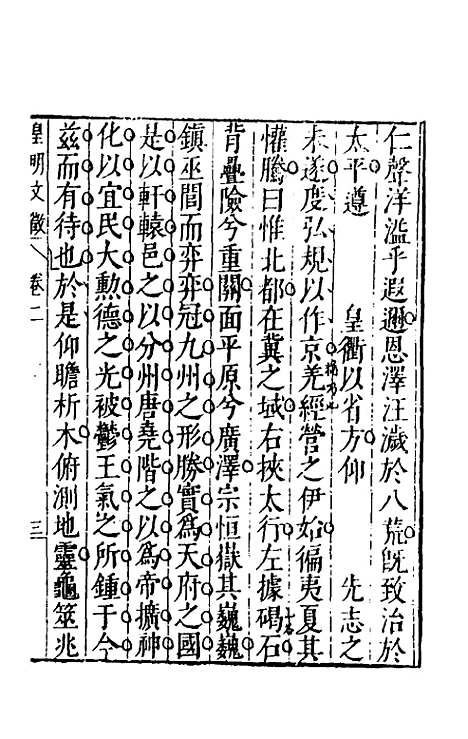 仁聲洋溢乎遐邇恩澤汪濊於八荒旣致治於
太平遵　皇衢以省方仰　先志之
未遂度弘規以作京羌經營之伊始徧夷夏其
懽騰曰惟北都在冀之域右挾太行左據碣石
背疊險兮重關面平原兮廣澤宗恒嶽其巍巍
鎮巫閭而弈弈冠九州之形勝實爲天府之國
是以軒轅邑之以分州唐堯階之以爲帝擴神
化以宜民大勳德之光被鬱王氣之所鍾于今
茲而有待也於是仰瞻析木俯測地靈龜筮兆
皇明文徵　卷二　三